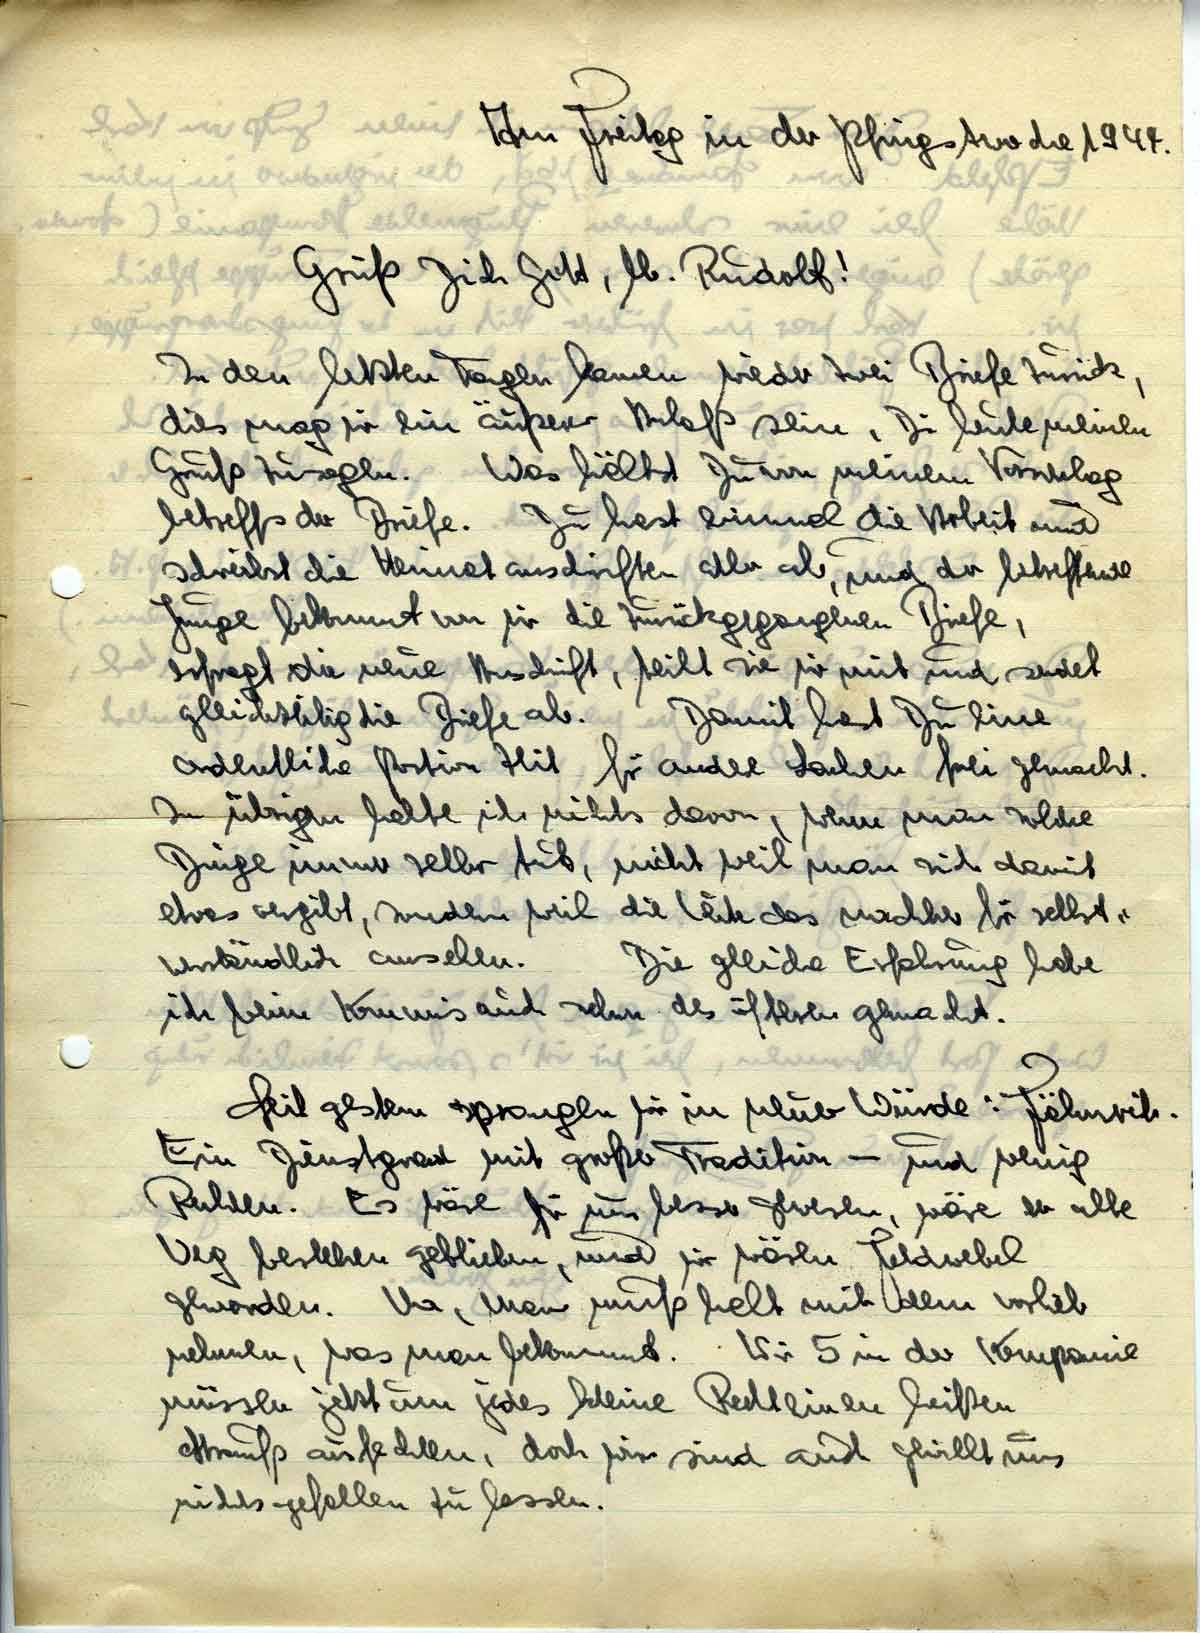 Am Freitag in der Pfingstwoche 1944.
Grüß Dich Gott, lb. Rudolf!
In den letzten Tagen kamen wieder zwei Briefe zurück,
dies mag mir ein äußerer Anlaß sein, Dir heute meinen
Gruß zu sagen. Was hältst Du von meinem Vorschlag
betreffs der Briefe. Du hast einmal die Arbeit und
schreibst die Heimatanschriften aller ab, und der betreffende
Junge bekommt von mir die zurückgegangenen Briefe,
erfragt die neue Anschrift, teilt sie mir mit und sendet
gleichzeitig die Briefe ab. Damit hast Du eine
ordentliche Portion Zeit für andere Sachen frei gemacht.
Im übrigen halte ich nichts davon, wenn man solche
Dinge immer selber tut, nicht weil man sich damit
etwas vergibt, sondern weil die Leute das nachher für selbst-
verständlich ansehen. Die gleiche Erfahrung habe
ich beim Kommis auch schon des öfteren gemacht.
Seit gestern prangen wir in neuer Würde: Fähnrich.
Ein Dienstgrad mit großer Tradition – und wenig
Rechten. Es wäre für uns besser gewesen, wäre der alte
Weg bestehen geblieben, und wir wären Feldwebel
geworden. Na, man muß halt mit dem vorlieb
nehmen, was man bekommt. Wir 5 in der Kompanie
müssen jetzt um jedes kleine Recht einen heißen
Strauß ausfechten, doch wir sind auch gewillt uns
nichts gefallen zu lassen.